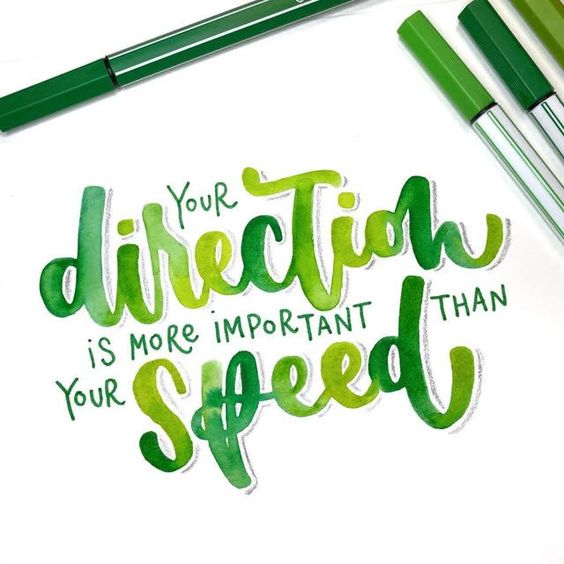 YOUR
direction
IS MORE IMPORTANT THAN
YOUR speed